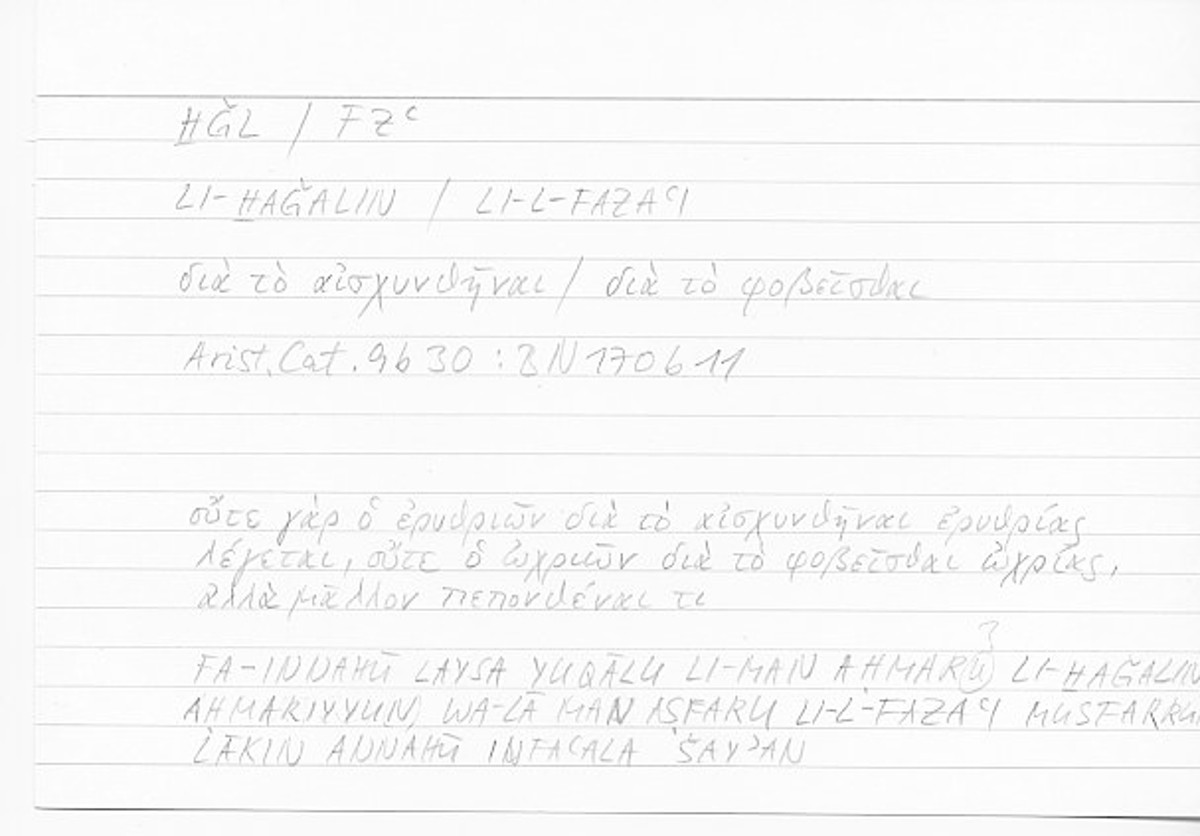 ḪǦL / FZʿ
LI-ḪAǦALIN / LI-L-FAZAʿI
διὰ τὸ αἰσχυνθῆναι / διὰ τὸ φοβεῖσθαι
Arist. Cat. 9b30 : BN 170b11
οὔτε γὰρ ὁ ἐρυθριῶν διὰ τὸ αἰσχυνθῆναι ἐρυθρίας
λέγεται, οὔτε ὁ ὠχριῶν διὰ τὸ φοβεῖσθαι ὠχρίας,
ἀλλὰ μᾶλλον πεπονθέναι τι
?
FA-INNAHŪ LAYSA YUQĀLU LI-MAN AHMARU LI-ḪAǦALIN
AHMARIYYUN, WA-LĀ MAN ISFARU LI-L-FAZAʿI MUSFARRU
LĀKIN ANNAHŪ INFAʿALA ŠAYʾAN